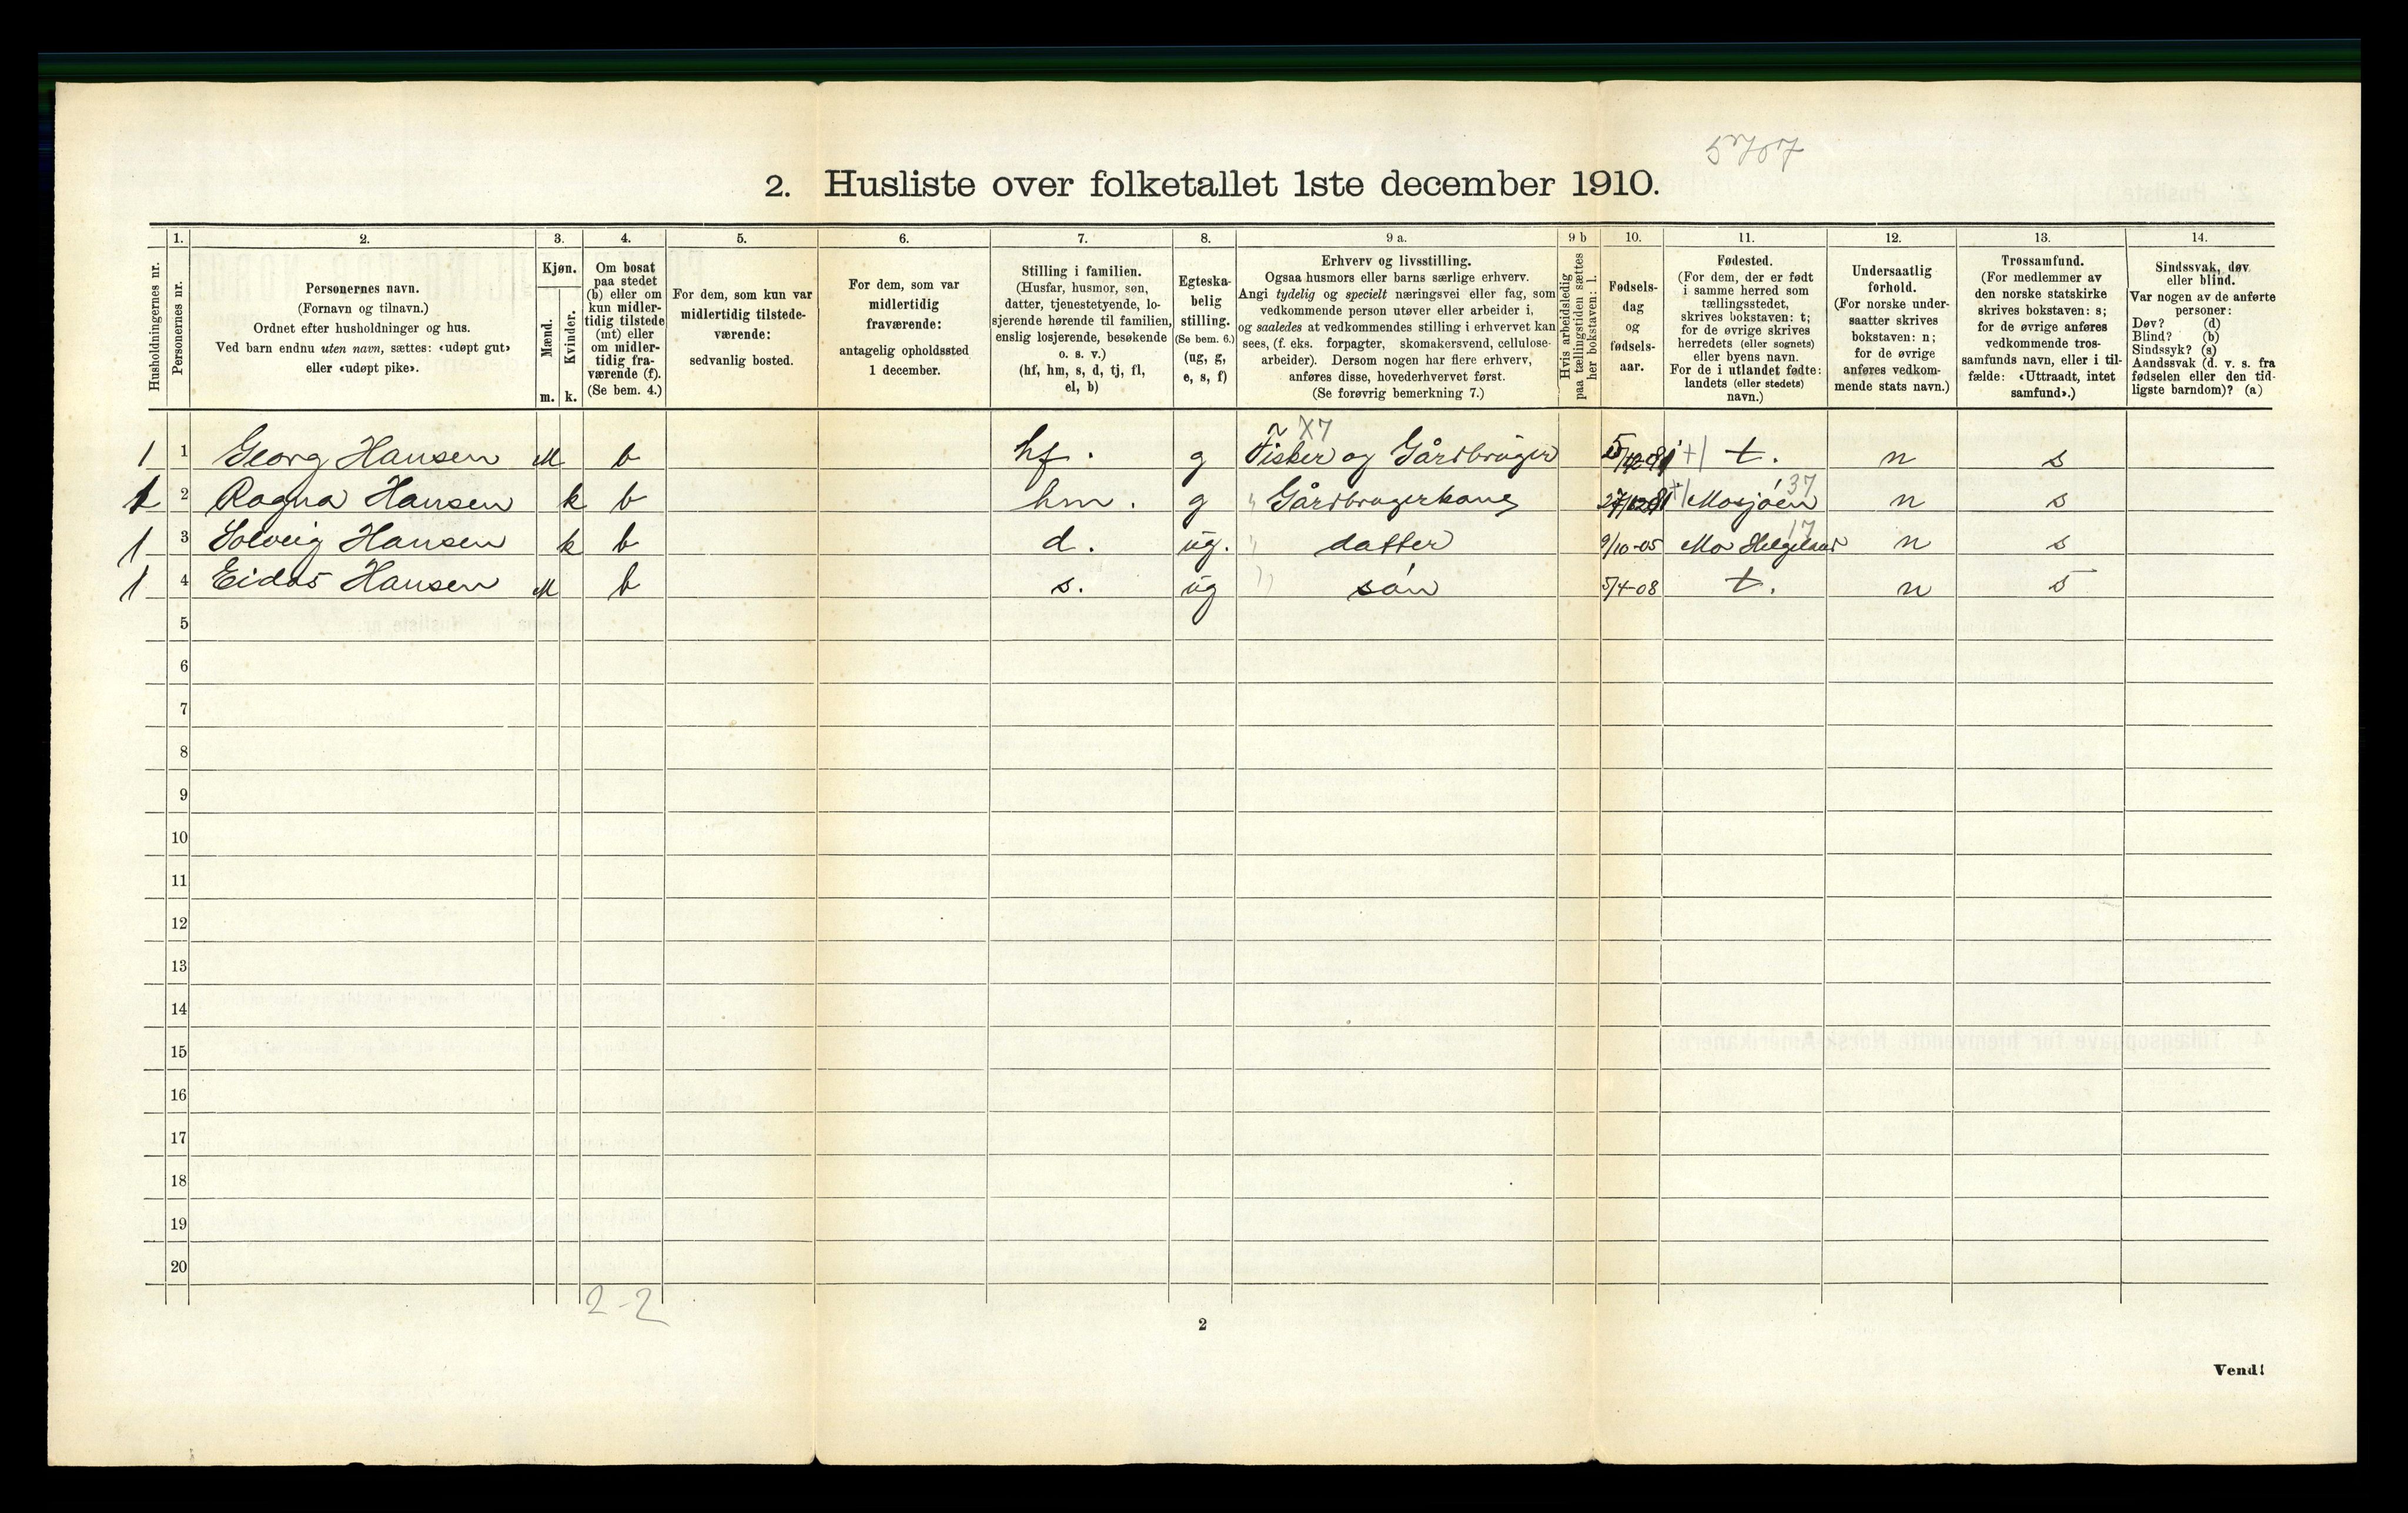 5707
2. Husliste over folketallet 1ste december 1910.
Husholdningernes nr.
1. Personernes nr.
2. Personernes navn.
(Fornavn og tilnavn.)
Ordnet efter husholdninger og hus.
Ved barn endnu uten navn, sættes: «udøpt gut»
eller «udøpt pike».
3. Kjøn.
Mænd. Kvinder.
m. k.
4. Om bosat
paa stedet
(b) eller om
kun midler-
tidig tilstede
(mt) eller
om midler-
tidig fra-
værende (f).
(Se bem. 4.)
5. For dem, som kun var
midlertidig tilstede-
værende:
sedvanlig bosted.
6. For dem, som var
midlertidig
fraværende:
antagelig opholdssted
1 december.
7. Stilling i familien.
(Husfar, husmor, søn,
datter, tjenestetyende, lo-
sjerende hørende til familien,
enslig losjerende, besøkende
o. s. v.)
(hf, hm, s, d, tj, fl,
el, b)
8. Egteska-
belig
stilling.
(Se bem. 6.)
(ug, g,
e, s, f)
9 a. Erhverv og livsstilling.
Ogsaa husmors eller barns særlige erhverv.
Angi tydelig og specielt næringsvei eller fag, som
vedkommende person utøver eller arbeider i,
og saaledes at vedkommendes stilling i erhvervet kan
sees, (f. eks. forpagter, skomakersvend, cellulose-
arbeider). Dersom nogen har flere erhverv,
anføres disse, hovederhvervet først.
(Se forøvrig bemerkning 7.)
9 b Hvis arbeidsledig
paa tællingstiden sættes
her bokstaven: l.
10. Fødsels-
dag
og
fødsels-
aar.
11. Fødested.
(For dem, der er født
i samme herred som
tællingsstedet,
skrives bokstaven: t;
for de øvrige skrives
herredets (eller sognets)
eller byens navn.
For de i utlandet fødte:
landets (eller stedets)
navn.)
12. Undersaatlig
forhold.
(For norske under-
saatter skrives
bokstaven: n;
for de øvrige
anføres vedkom-
mende stats navn.)
13. Trossamfund.
(For medlemmer av
den norske statskirke
skrives bokstaven: s;
for de øvrige anføres
vedkommende tros-
samfunds navn, eller i til-
fælde: «Uttraadt, intet
samfund».)
14. Sindssvak, døv
eller blind.
Var nogen av de anførte
personer:
Døv? (d)
Blind? (b)
Sindssyk? (s)
Aandssvak (d. v. s. fra
fødselen eller den tid-
ligste barndom)? (a)
X7
1 1 Georg Hansen M b hf. g Fisker og Gårdbruger t. n s
37
1 2 Ragna Hansen k b hm. g " Gårdbrugerkone Mosjøen n s
17
1 3 Solveig Hansen k b d. ug. " datter 9/10-05 Mo Helgeland n s
1 4 Eidar Hansen M b s. ug " søn 5/4-08 t. n s
5
6
7
8
9
10
11
12
13
14
15
16
17
18
19
20
2-2
2
Vend!